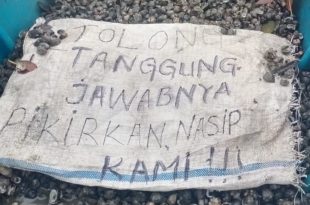 TOLONG
TANGGUNG
JAWABNYA
PIKIRKAN, NASIP
KAMI!!!